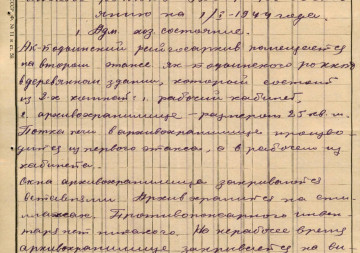 янию на 1/I-1944 года.
1. Адм. хоз. состояние.
Ак-Бодоинский райгосархив помещается
на втором этаже Як-Бодоинского РО НКВД
в деревянном здании, которой состоит
из 2-х комнат: 1. рабочий кабинет,
2. архивохранилище - размером 25 кв. м.
Потка печи в архивохранилище произво-
дится из первого этажа, а в рабочем из
кабинета.
Окна архивохранилища закрываются
ставнями. Архив хранится на сте-
лажах. Противопожарного инвен-
таря нет никакого. На нерабочее время
архивохранилище закрывается на ви-